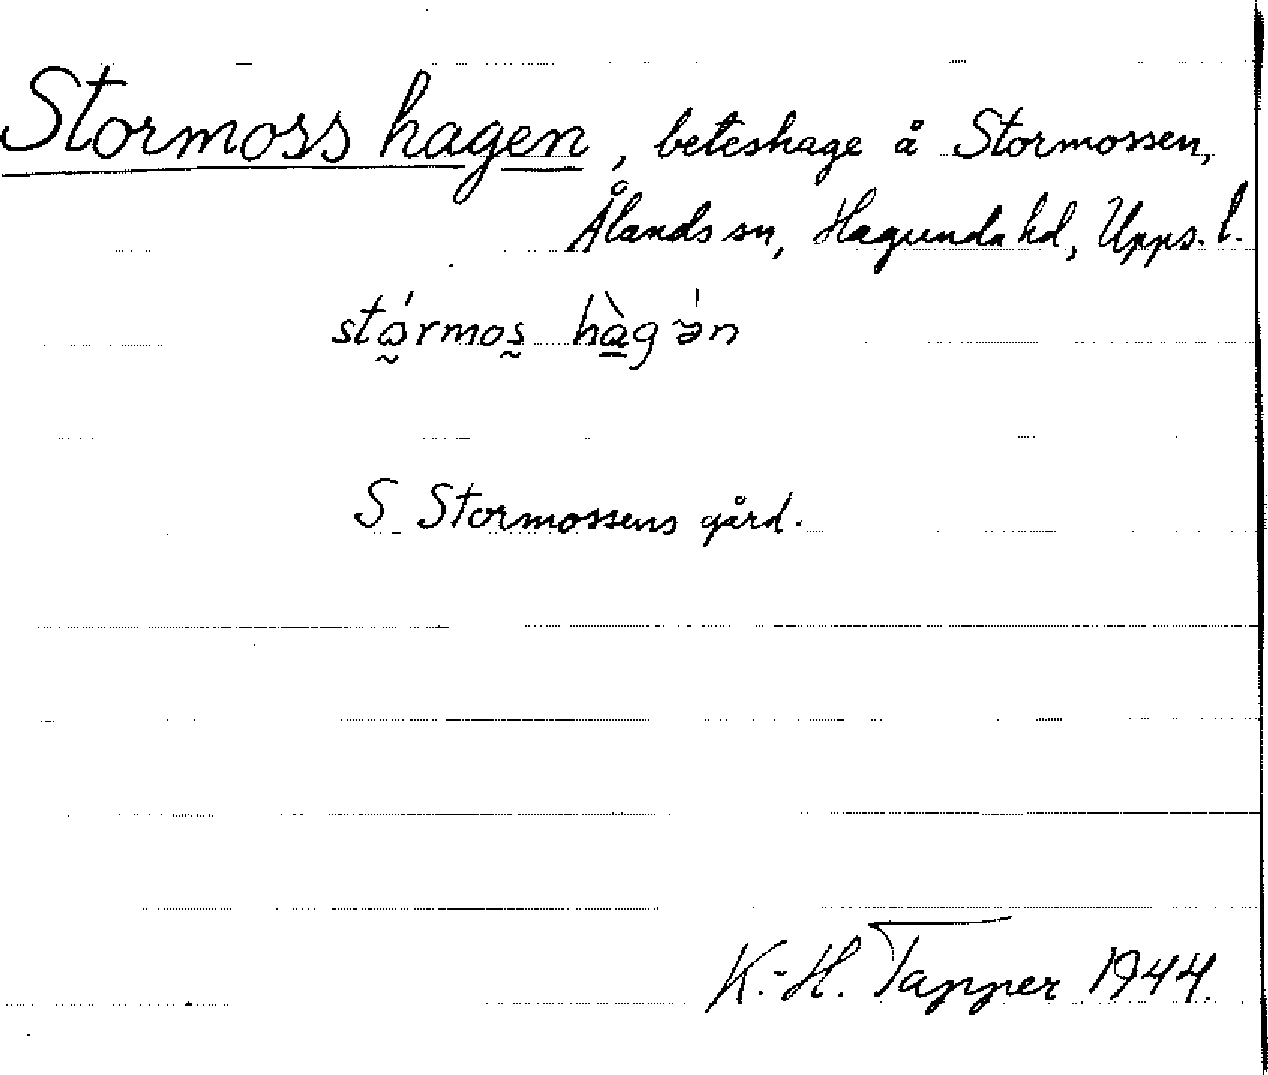 Stormosshagen, beteshage å Stormossen,
Ålands sn, Hagunda hd, Upps. l.
stǫ́rmos̰ hàgə̍n
S Stormossens gård.
K.-H. Tapper 1944.